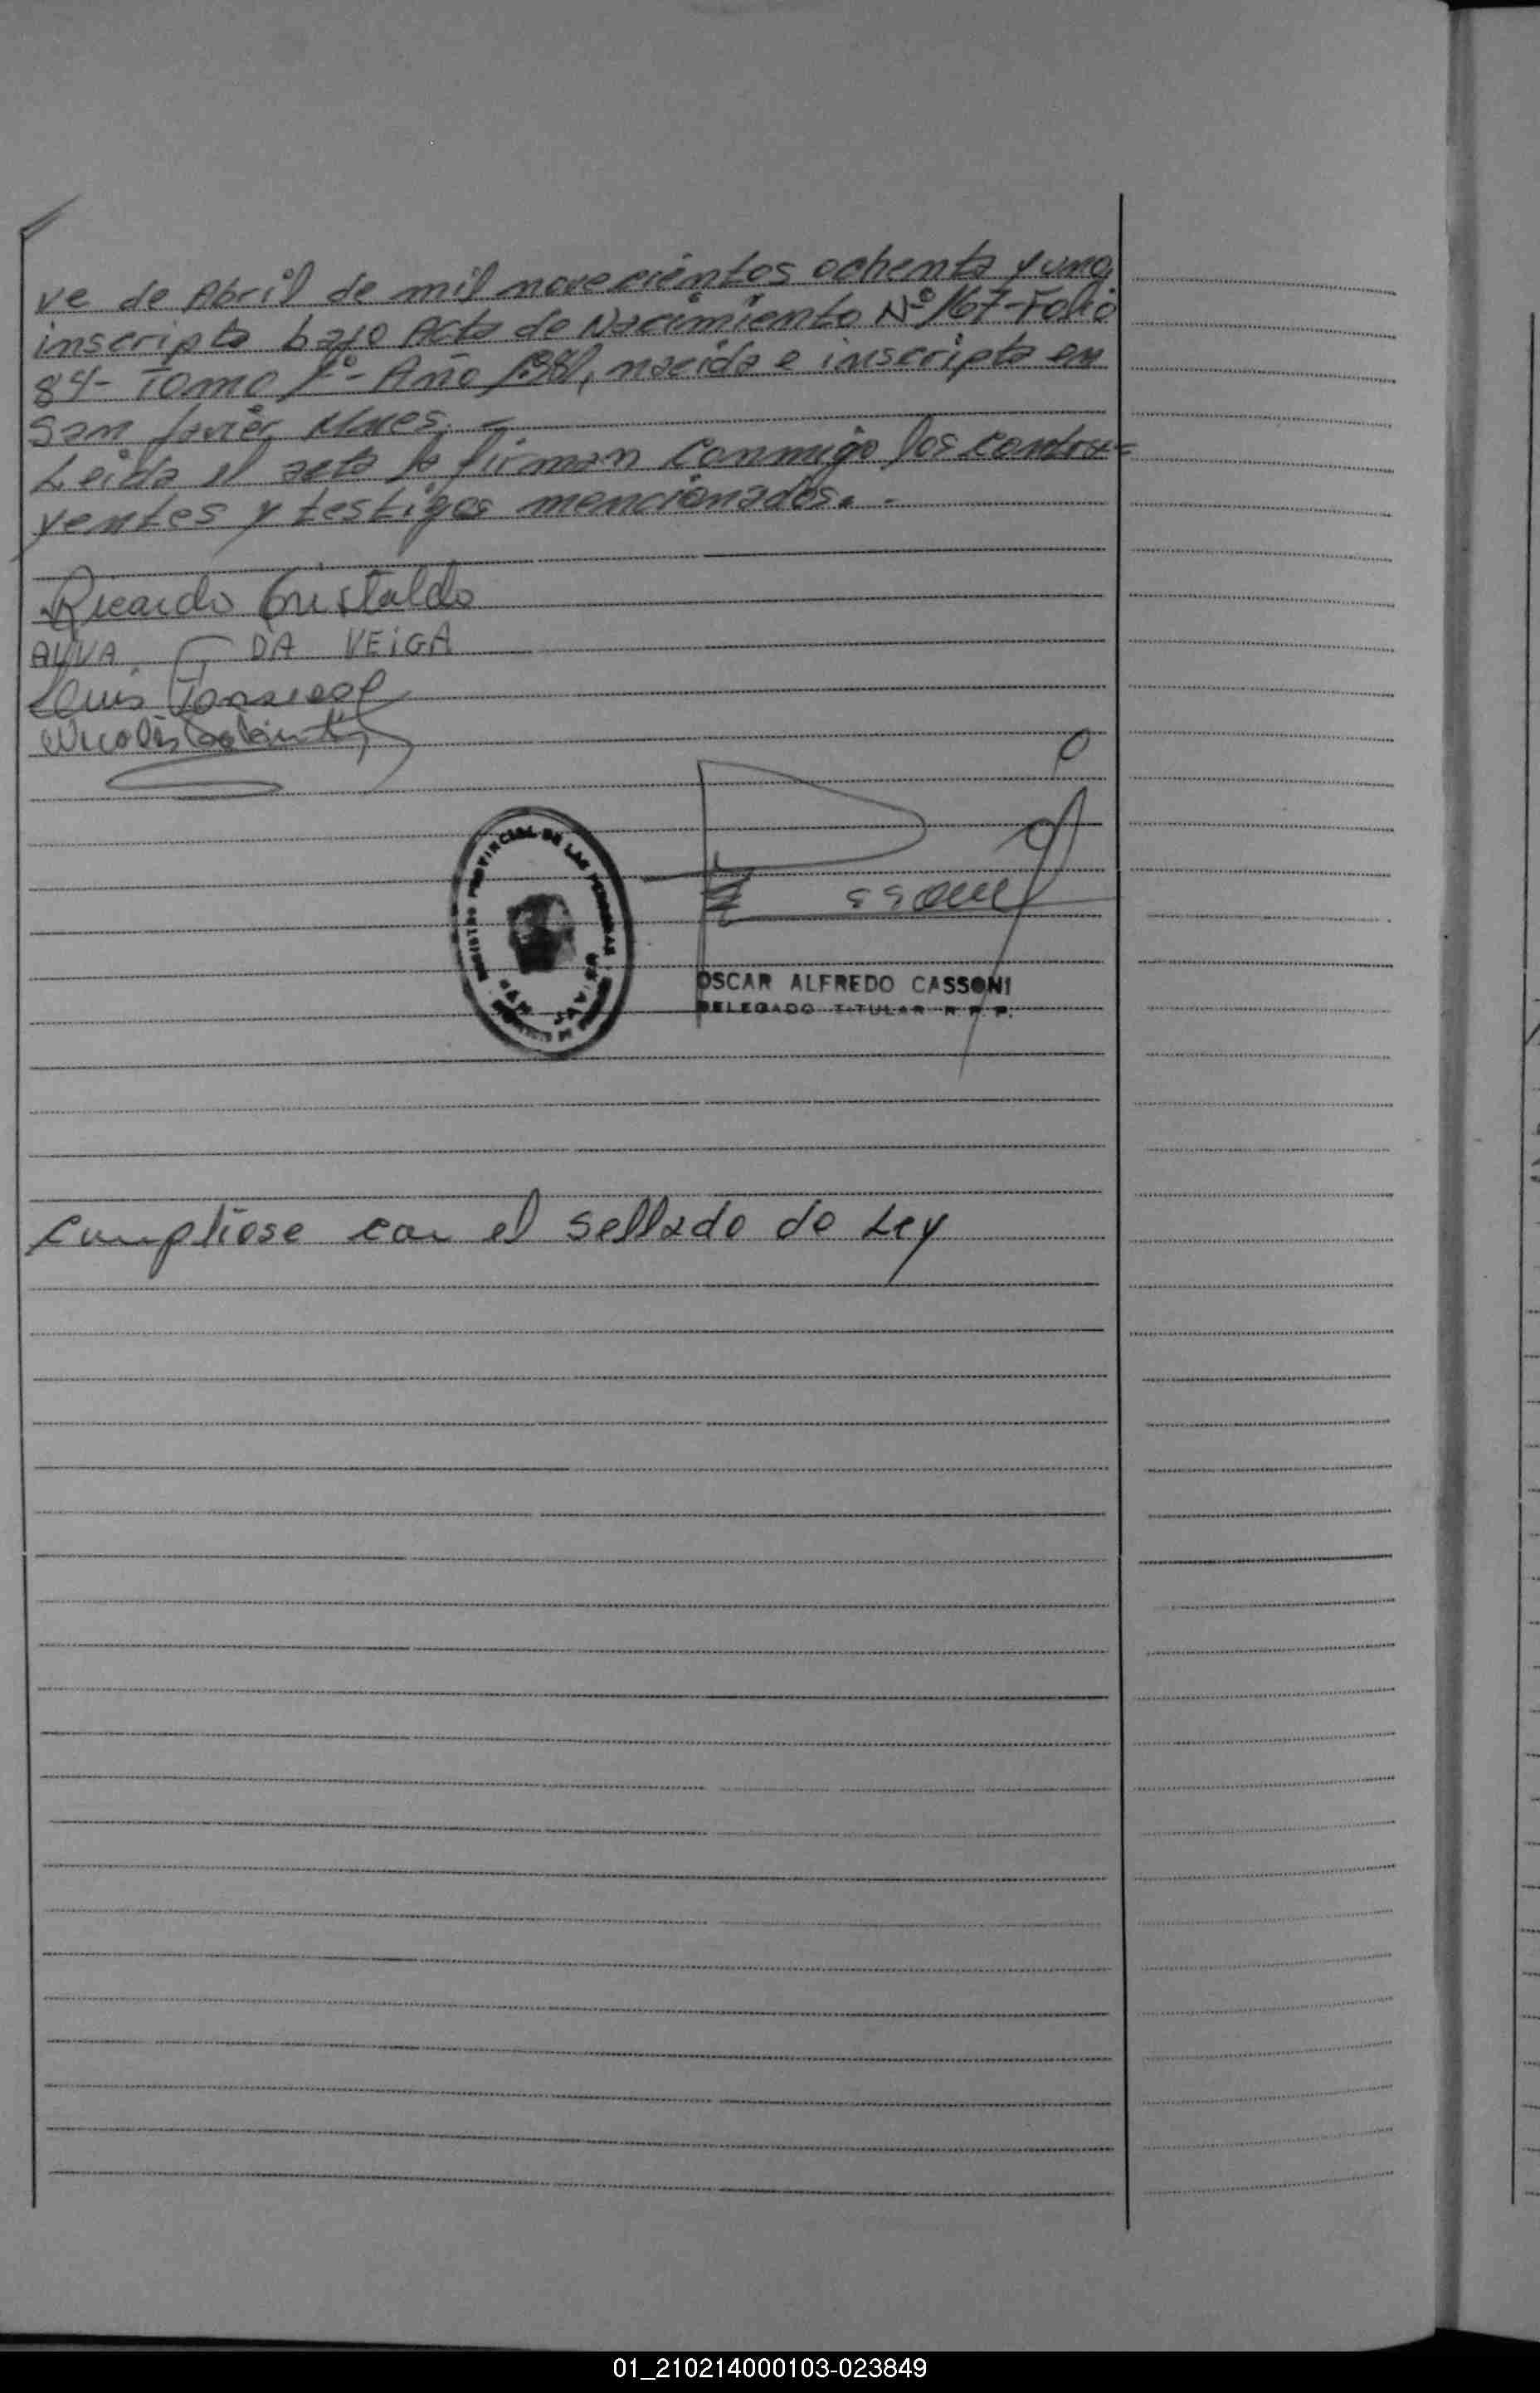 ve de Abril de mil novecientos ochenta y uno,
inscripta bajo Acta de Nacimiento Nº 167-Folio
84- Tomo 1º- Año 1981, nacida e inscripta en
San Javier, Mnes. -
Leida el acta la firman conmigo los contra=
yentes y testigos mencionados. -
Ricardo Cristaldo
DA VEIGA
Luis
Nicolás
REGISTRO PROVINCIAL DE LAS PERSONAS
OSCAR ALFREDO CASSONI
DELEGADO TITULAR R. P. P.
Cumpliose con el sellado de Ley
01_210214000103-023849